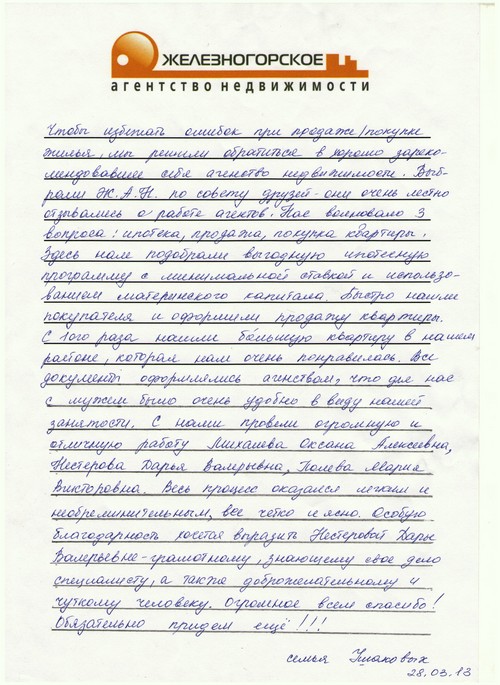 ЖЕЛЕЗНОГОРСКОЕ
агентство недвижимости
Чтобы избежать ошибок при продаже/покупке
жилья, мы решили обратиться в хорошо зареко-
мендовавшее себя агенство недвижимости. Выб-
рали Ж.А.Н. по совету друзей - они очень лестно
отзывались о работе агентов. Нас волновало 3
вопроса: ипотека, продажа, покупка квартиры.
Здесь нам подобрали выгодную ипотечную
программу с минимальной ставкой и использо-
ванием материнского капитала. Быстро нашли
покупателя и оформили продажу квартиры.
С 1ого раза нашли большую квартиру в нашем
районе, которая нам очень понравилась. Все
документы оформлялись агинством, что для нас
с мужем было очень удобно в виду нашей
занятости. С нами провели огромную и
отличную работу Михалева Оксана Алексеевна,
Нестерова Дарья Валерьевна, Полева Мария
Викторовна. Весь процесс оказался легким и
необременительным, все четко и ясно. Особую
благодарность хочется выразить Нестеровой Дарье
Валерьевне - грамотному, знающему свое дело
специалисту, а также доброжелательному и
чуткому человеку. Огромное всем спасибо!
Обязательно придем ещё!!!
семья Ушаковых
28.03.13